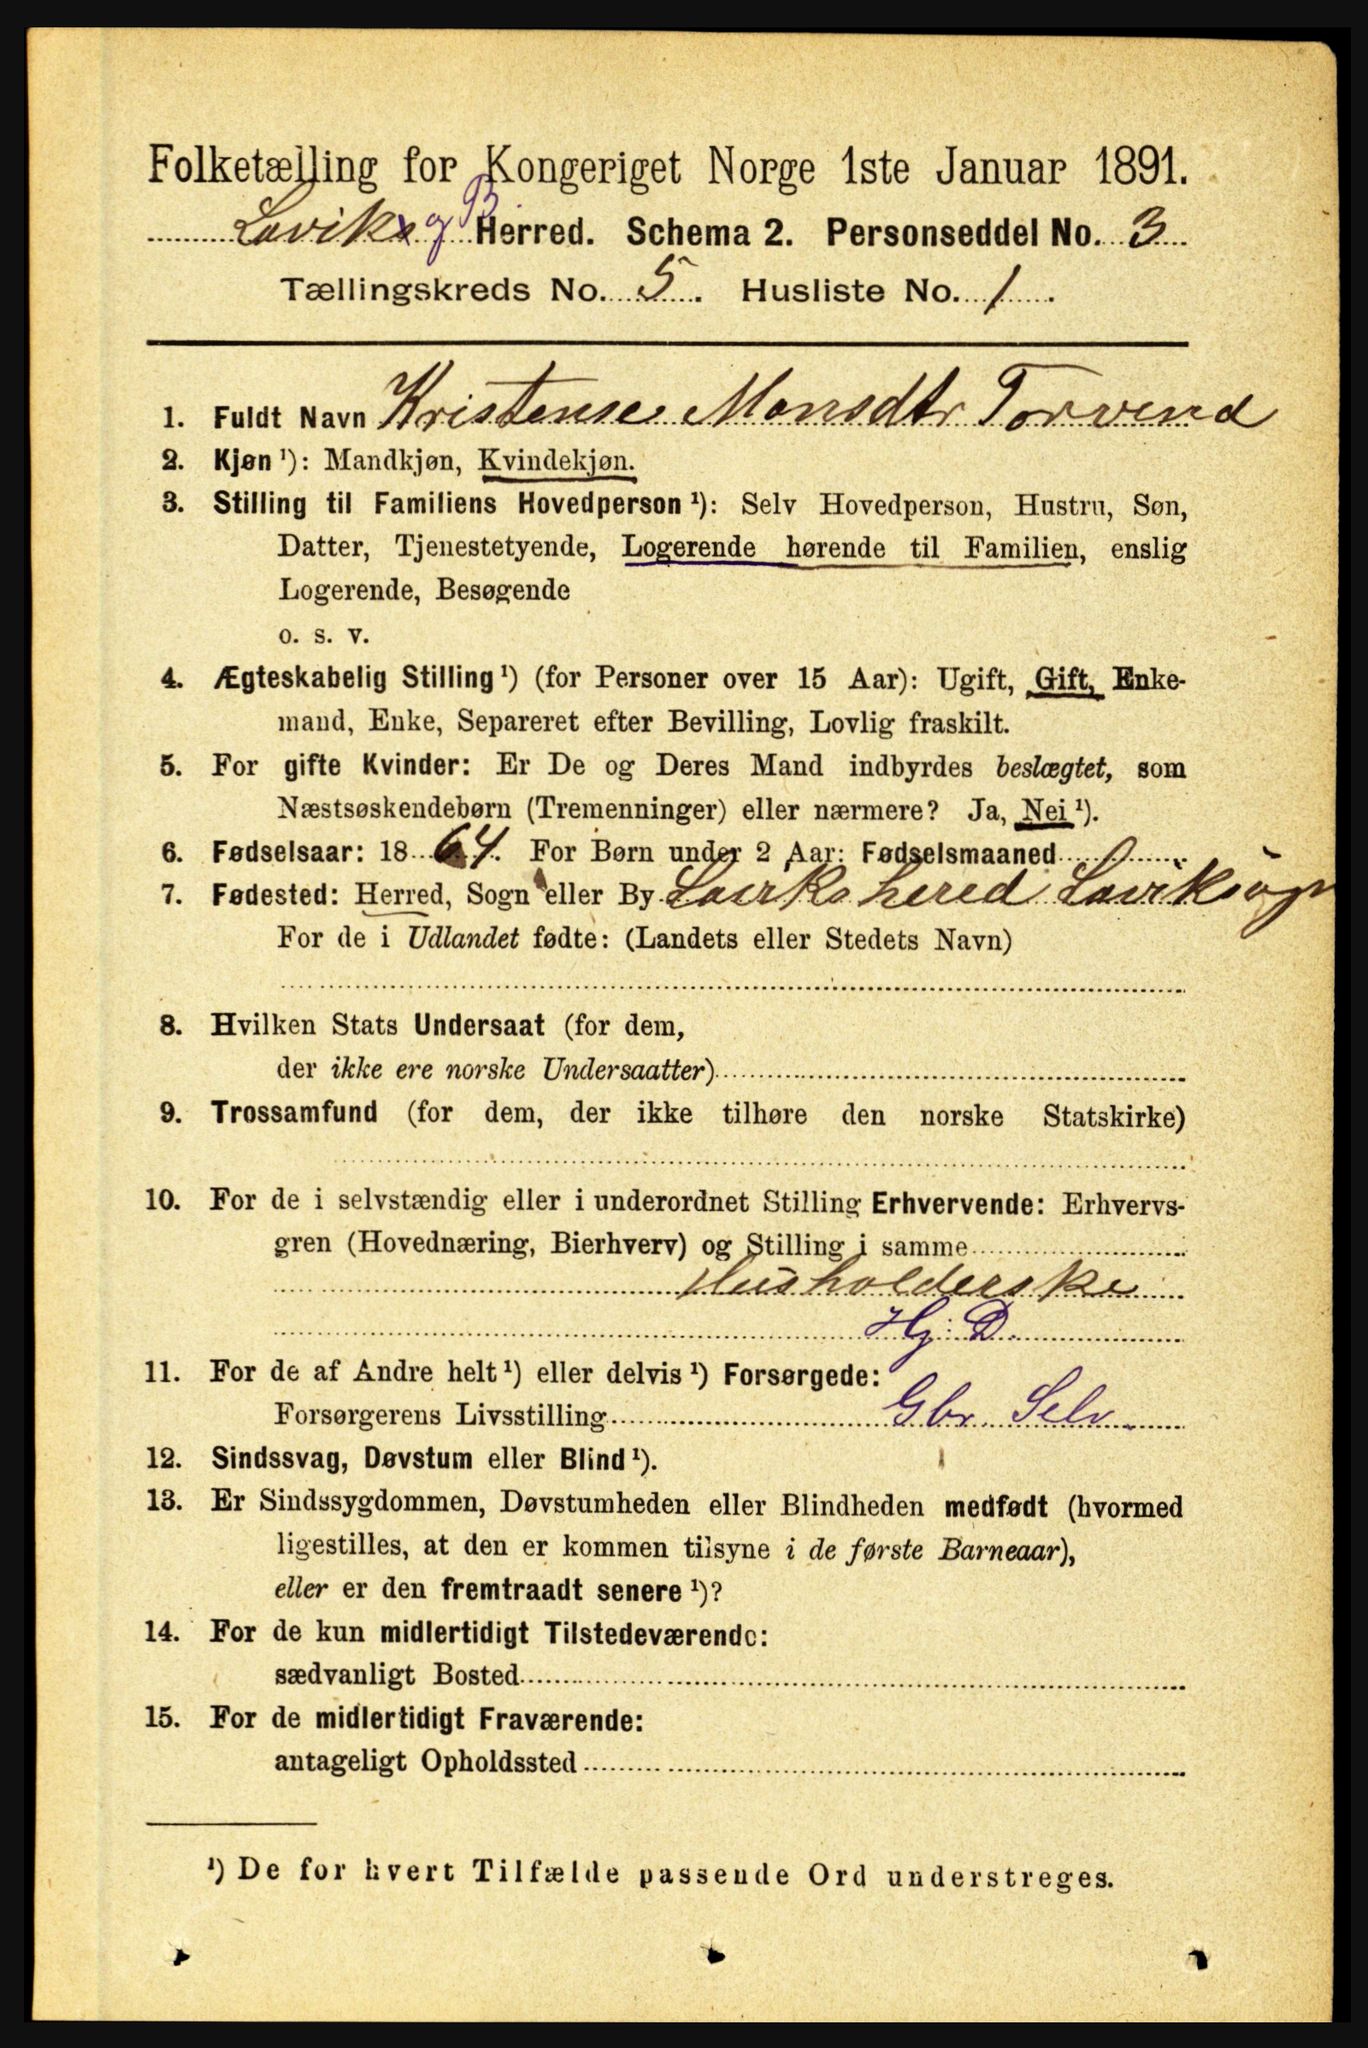 Folketælling for Kongeriget Norge 1ste Januar 1891.
Laviks og B. Herred. Schema 2. Personseddel No. 3
Tællingskreds No. 5. Husliste No. 1.
1. Fuldt Navn Kristense Monsdtr Torvend
2. Kjøn ¹): Mandkjøn, Kvindekjøn.
3. Stilling til Familiens Hovedperson ¹): Selv Hovedperson, Hustru, Søn,
Datter, Tjenestetyende, Logerende hørende til Familien, enslig
Logerende, Besøgende
o. s. v.
4. Ægteskabelig Stilling ¹) (for Personer over 15 Aar): Ugift, Gift, Enke-
mand, Enke, Separeret efter Bevilling, Lovlig fraskilt.
5. For gifte Kvinder: Er De og Deres Mand indbyrdes beslægtet, som
Næstsøskendebørn (Tremenninger) eller nærmere? Ja, Nei ¹).
6. Fødselsaar: 1864. For Børn under 2 Aar: Fødselsmaaned
7. Fødested: Herred, Sogn eller By Laviks hered Laviksogn
For de i Udlandet fødte: (Landets eller Stedets Navn)
8. Hvilken Stats Undersaat (for dem,
der ikke ere norske Undersaatter)
9. Trossamfund (for dem, der ikke tilhøre den norske Statskirke)
10. For de i selvstændig eller i underordnet Stilling Erhvervende: Erhvervs-
gren (Hovednæring, Bierhverv) og Stilling i samme
Husholderske
Hj: D.
11. For de af Andre helt ¹) eller delvis ¹) Forsørgede:
Forsørgerens Livsstilling Gbr. Selv.
12. Sindssvag, Døvstum eller Blind ¹).
13. Er Sindssygdommen, Døvstumheden eller Blindheden medfødt (hvormed
ligestilles, at den er kommen tilsyne i de første Barneaar),
eller er den fremtraadt senere ¹)?
14. For de kun midlertidigt Tilstedeværende:
sædvanligt Bosted
15. For de midlertidigt Fraværende:
antageligt Opholdssted
¹) De for hvert Tilfælde passende Ord understreges.